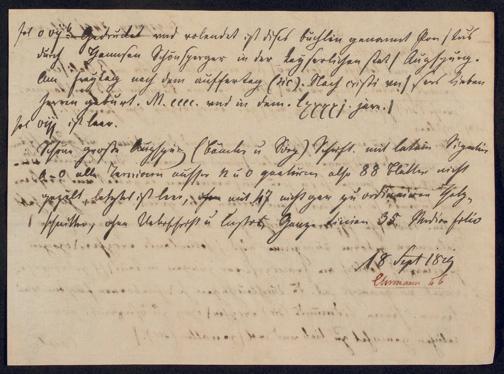 Gedruckt und volendet ist dises büchlin genannt
durch Hannsen Schönsperger in der keyserlichen stat Augspurg.
Am freytag nach dem auffertag (sic). Nach cristi vnsers lieben
herren geburt. M. cccc. vnd in dem. lxxxxj. jar.
ist leer.
Schöne große Augspurg (Bämler u Sorg) Schrift. mit latein Signaturen
a–o alle Ternionen ausser n u o quaternen also 88 Blätter nicht
gezält, letztes ist leer, mit 47 nicht gar zu Holz-
schnitten, ohne Ueberschrift u Custos. Ganze 35 Median folio
18 Sept 18
Ehrmann 66